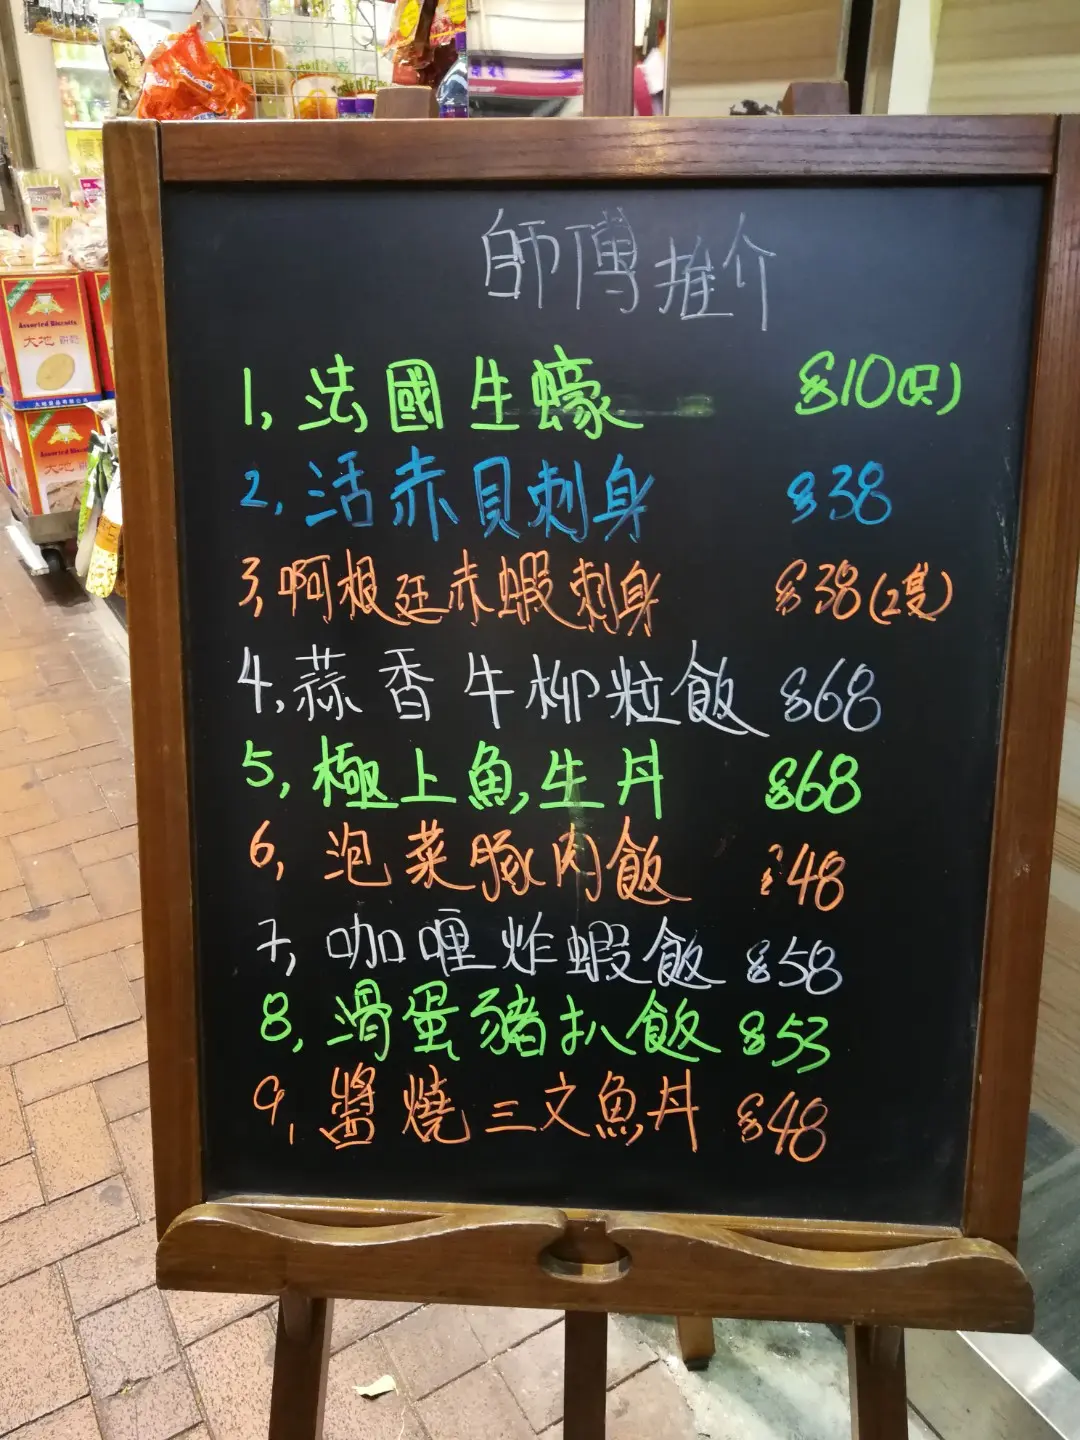 師傅推介
1, 法國生蠔 $10(只)
2, 活赤貝刺身 $38
3, 啊根廷赤蝦刺身 $38(2隻)
4, 蒜香牛柳粒飯 $68
5, 極上魚生丼 $68
6, 泡菜豚肉飯 $48
7, 咖喱炸蝦飯 $58
8, 滑蛋豬扒飯 $53
9, 醬燒三文魚丼 $48
Assorted Biscuits
大地
Assorted Biscuits
大地